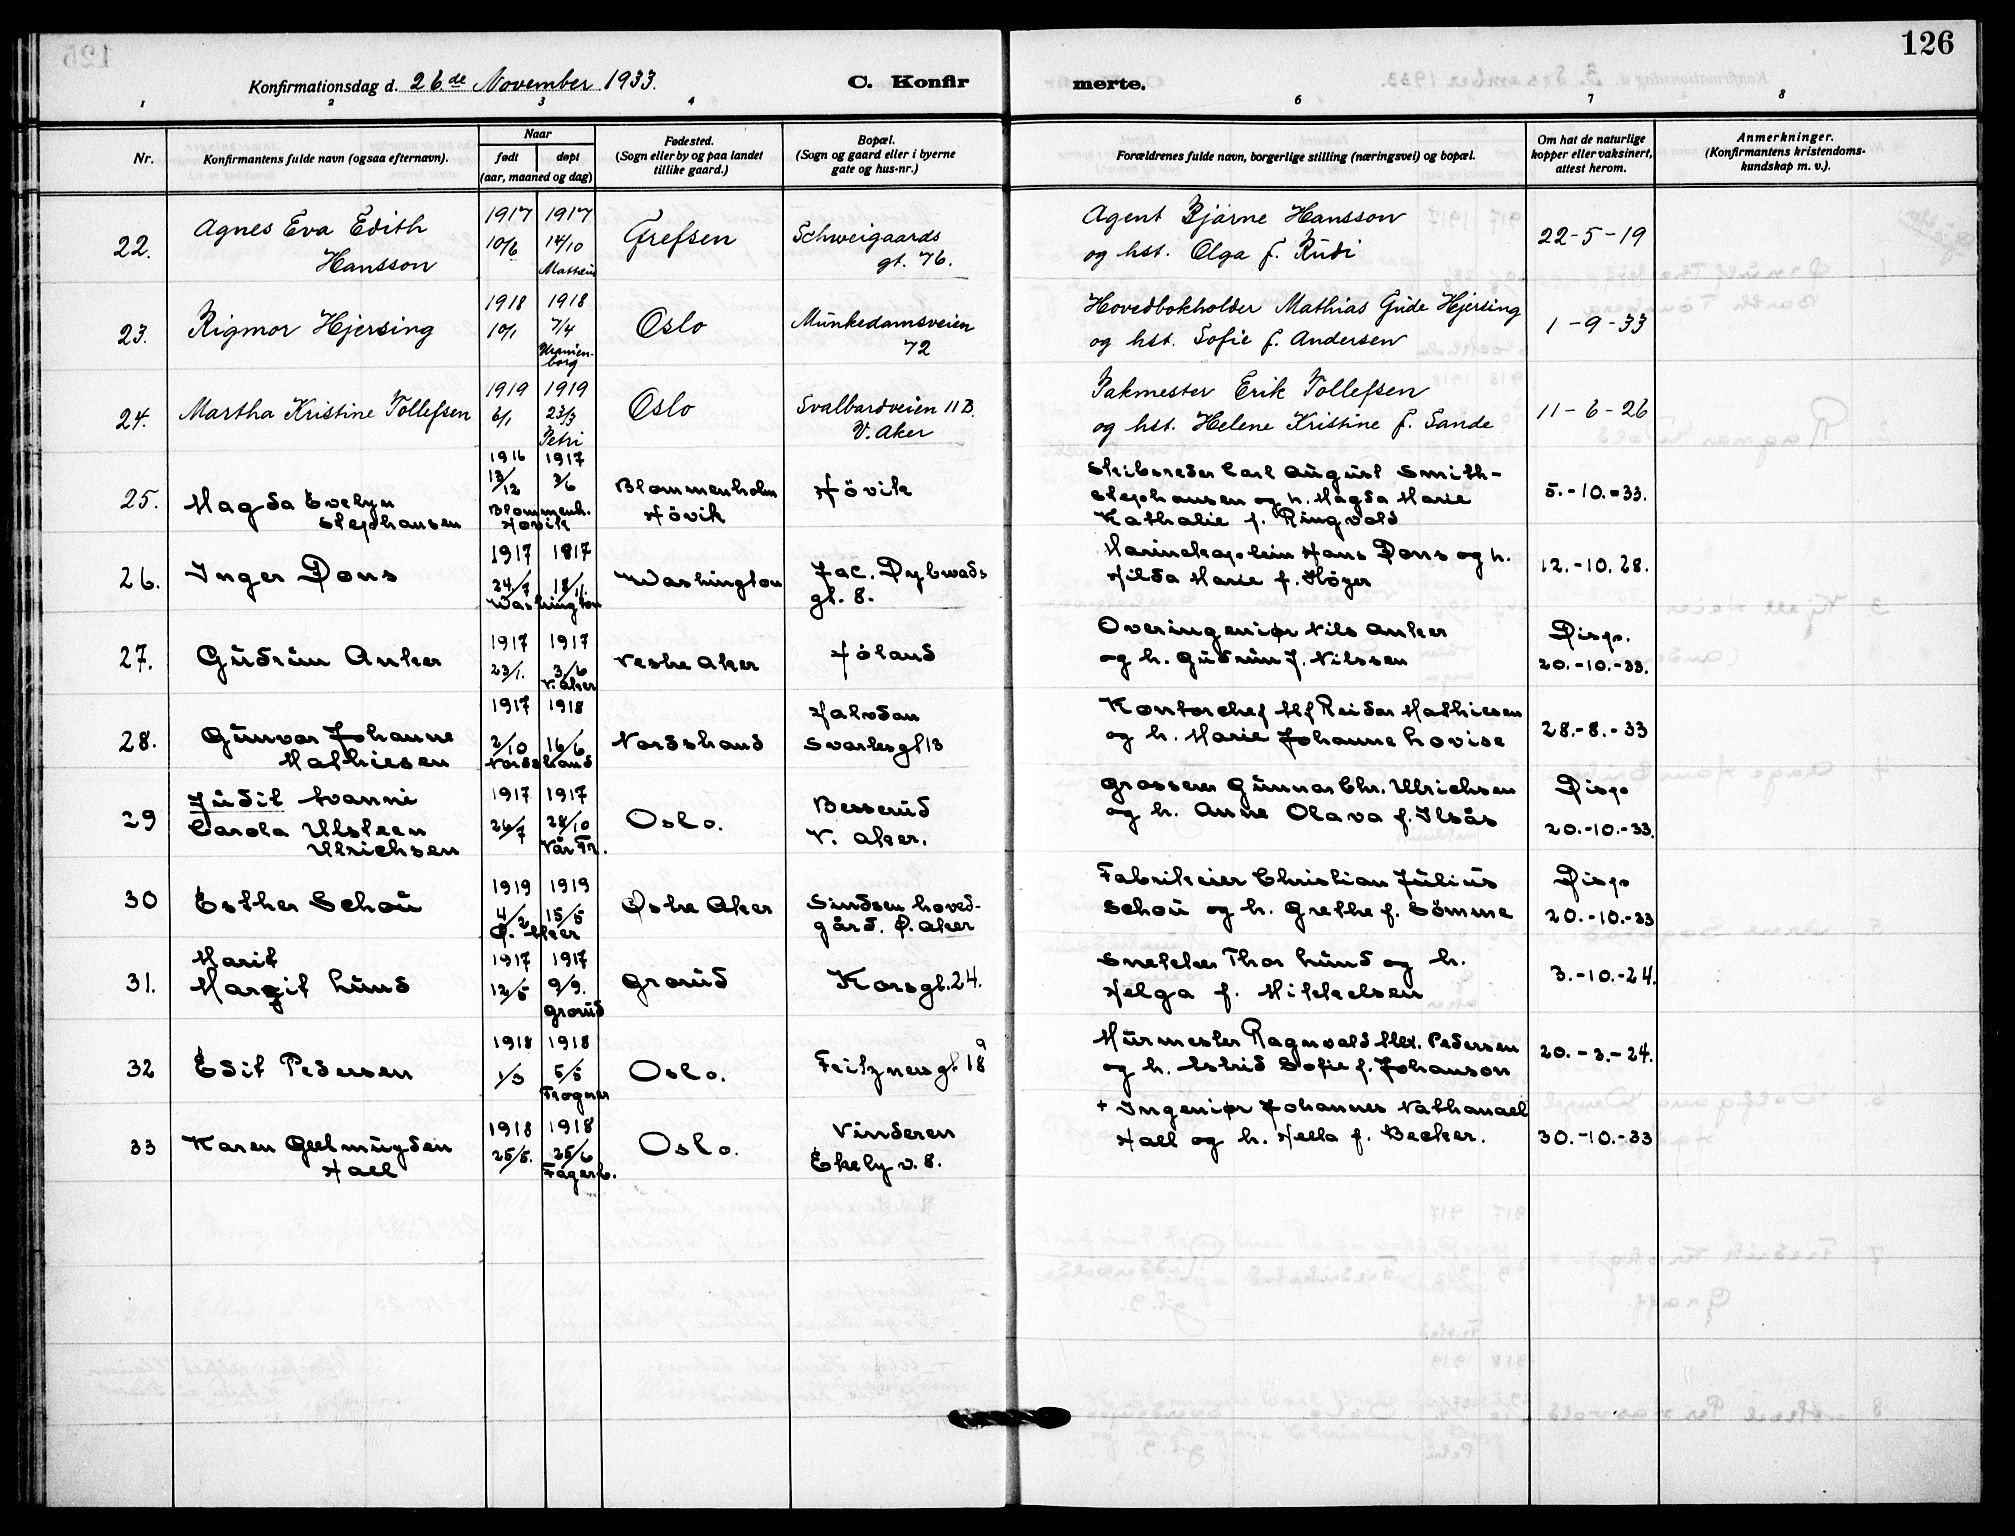 126
Konfirmationsdag d. 26de November 1933.
C. Konfir
merte.
1 2 3 4 6 7 8
Nr.
Konfirmantens fulde navn (ogsaa efternavn).
Naar
født
døpt
(aar, maaned og dag)
Fødested.
(Sogn eller by og paa landet
tillike gaard.)
Bopæl.
(Sogn og gaard eller i byerne
gate og hus-nr.)
Forældrenes fulde navn, borgerlige stilling (næringsvei) og bopæl.
Om hat de naturlige
kopper eller vaksinert,
attest herom.
Anmerkninger.
(Konfirmantens kristendoms-
kundskap m. v.).
22. Agnes Eva Edith
Hansson
1917 10/6
1917 14/10
Grefsen
Schweigaards
gt. 76.
Agent Bjarne Hansson
og hst. Olga f. Rudi
22-5-19
23. Rigmor Hjersing
1918 10/1
1918 7/4
Uranien-
borg
Oslo
Munkedamsveien
72
Hovedbokholder Mathias Gude Hjersing
og hst. Sofie f. Andersen
1-9-33
24. Martha Kristine Tollefsen
1919 6/1
1919 23/3
Petri
Oslo
Svalbardveien 11 B.
V. Aker
Pakmester Erik Tollefsen
og hst. Helene Kristine f. Sande
11-6-26
25. Magda Evelyn
Stephansen
1916 13/12
1917 3/6
Blommenh.
Høvik
Blommenholm
Høvik
Høvik
Skibsreder Carl August Smith-
Stephansen og h. Magda Marie
Kathalie f. Ringvold
5.-10.-33.
26. Inger Dons
1917 24/7
1817 18/11.
Washington
Washington
Jac. Dybwads
gt. 8.
Marinekaptein Hans Dons og h.
Hilda Marie f. Høyer
12.-10.28.
27. Gudrun Anker
1917 23/1.
1917 3/6
V. Aker
Vestre Aker
Høland
Overingeniør Nils Anker
og h. Gudrun f. Nilssen
Disp.
20.-10.-33.
28. Gunvor Johanne
Mathiesen
1917 2/10
1918 16/6
Nordstrand
Nordstrand
Halvdan
Svartesgt 13
Kontorchef Alf Reidar Mathiesen
og h. Marie Johanne Lovise
28.-8.-33
29 Judit Ivanni
Carola Ulsteen
Ulrichsen
1917 26/7
1917 28/10
Vår Fr.
Oslo.
Besserud
V. Aker.
Grosserer Gunnar Chr. Ulrichsen
og h. Anne Olava f. Ilsås
Disp
20.-10.-33.
30 Esther Schou
1919 4/2
1919 15/5
Ø. Aker
Østre Aker
Sindsen hoved-
gård. Ø. Aker
Fabrikeier Christian Julius
Schou og h. Grethe f. Sømme
Disp
20.-10.-33
31. Marit
Margit Lund
1917 12/5
1917 9/9.
Grorud
Grorud
Korsgt. 24.
Snekker Thor Lund og h.
Helga f. Mikkelsen
3.-10.-24.
32 Edit Pedersen
1918 1/3
1918 5/5
Frogner
Oslo.
Feitznersgt 18 a
Murmester Ragnvald Alex. Pedersen
og h. Astrid Sofie f. Johanson
20.-3.-24.
33 Karen Geelmuyden
Hall
1918 25/5.
1918 25/6
Fagerb.
Oslo.
Vinderen
Ekely v. 8.
+ Ingeniør Johannes Nathanael
Hall og h. Hella f. Becker.
30.-10.-33